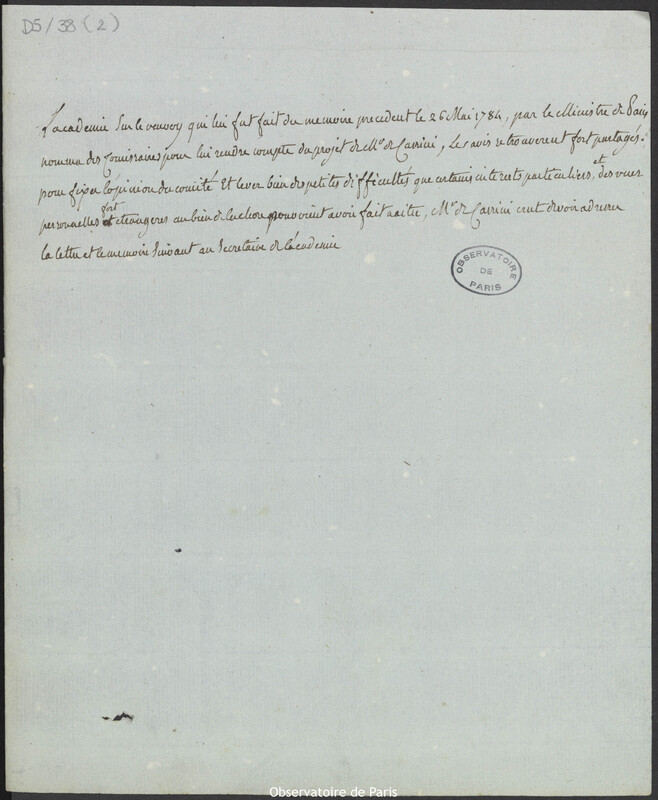 D5/38 (2)
L'academie sur le renvoy qui lui fut fait du memoire precedent le 26 Mai 1784, par le Ministre de Paris
nomma des Comissaires pour lui rendre compte du projet de Mr. de Cassini, Les avis se trouverent fort partagés.
pour fixer l'opinion du comité Et lever bien des petites difficultés que certains interets particuliers, et des vues
personnelles fort etrangeres au bien de la chose pouvoient avoir fait naitre, Mr. de Cassini crut devoir adresser
la lettre et le memoire suivant au Secretaire de l'academie
OBSERVATOIRE
DE
PARIS
Observatoire de Paris